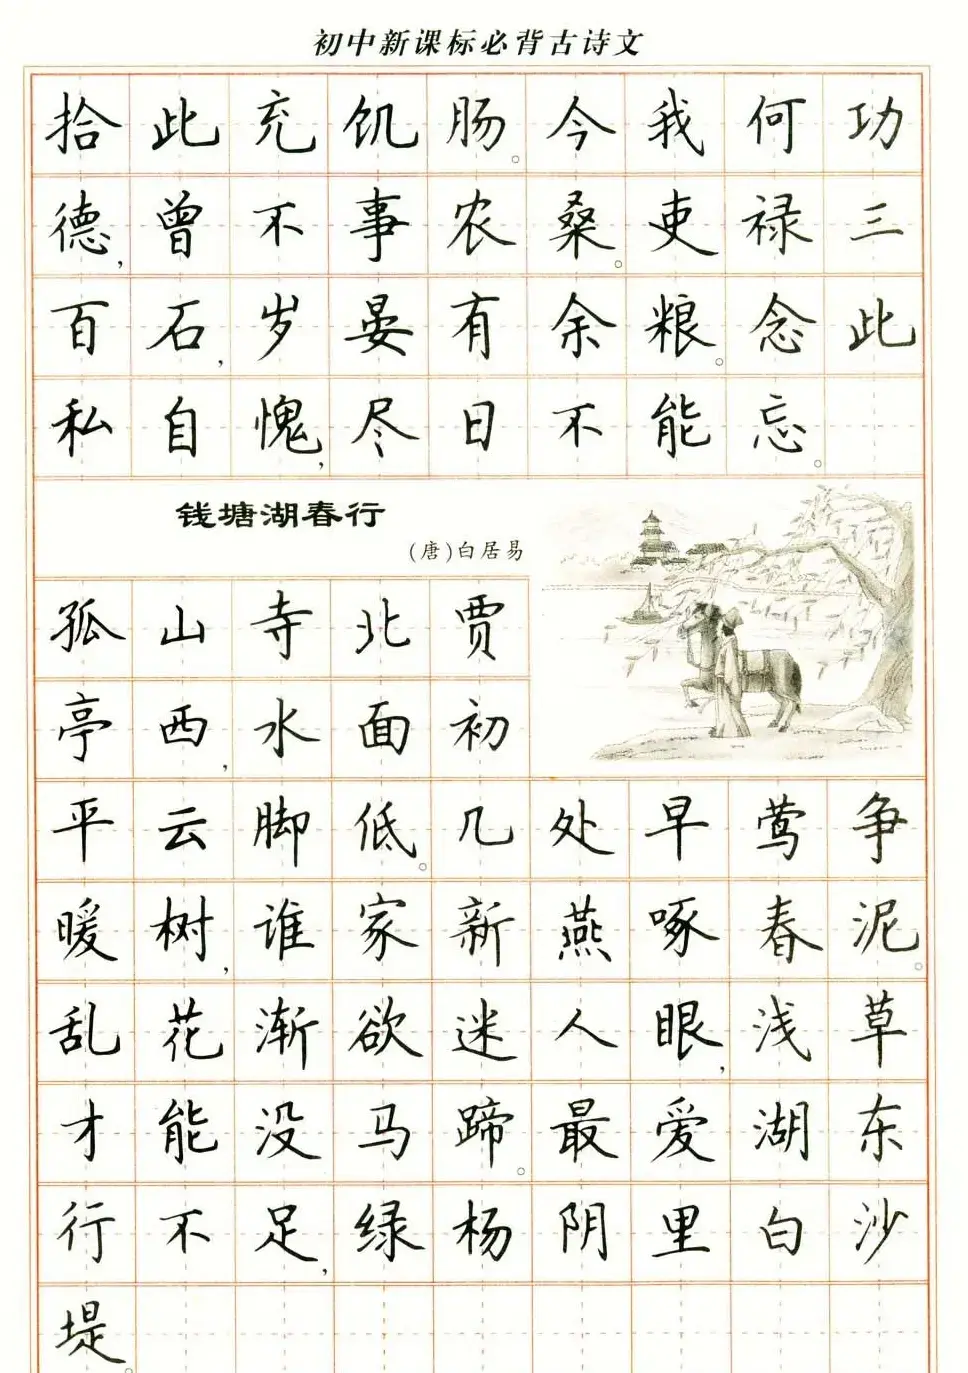 初中新课标必背古诗文
拾此充饥肠。今我何功
德，曾不事农桑。吏禄三
百石，岁晏有余粮。念此
私自愧，尽日不能忘。
钱塘湖春行
（唐）白居易
孤山寺北贾
亭西，水面初
平云脚低。几处早莺争
暖树，谁家新燕啄春泥。
乱花渐欲迷人眼，浅草
才能没马蹄。最爱湖东
行不足，绿杨阴里白沙
堤。